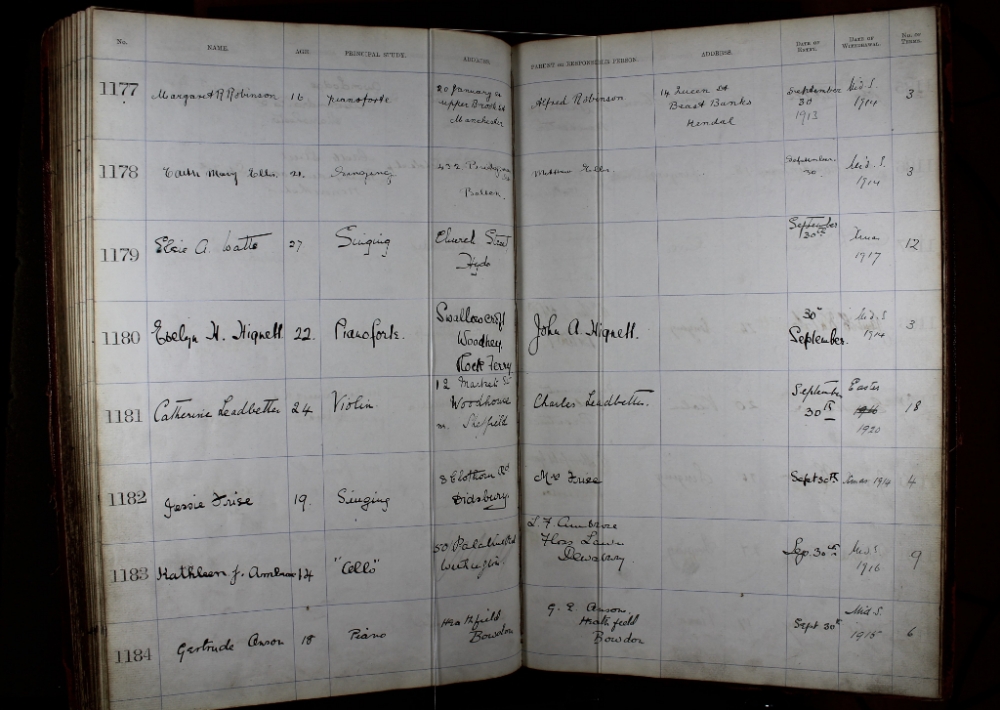 No. NAME. AGE. PRINCIPAL STUDY. ADDRESS. PARENT OR RESPONSIBLE PERSON. ADDRESS. DATE OF ENTRY. DATE OF WITHDRAWAL. NO. OF TERMS.
1177 Margaret R Robinson 16 pianoforte
Upper Brook St
Manchester
Alfred Robinson
14 Queen St
Beast Banks
Kendal
September
30
1913
Mid S.
1914
3
1178 Mary Singing
432
Bolton.
September
30
Mid. S.
1914
3
1179 Elsie A. Watts 27 Singing
Church Street
Hyde
September
30th
Xmas
1917
12
1180 Evelyn H. Hignett 22. Pianoforte.
Swallowcroft
Woodhey.
Rock Ferry
John A Hignett.
30th
September.
Mid. S
1914
3
1181 Catherine Leadbetter 24 Violin
12 Market St
Woodhouse
nr. Sheffield
Charles Leadbetter.
September
30th
Easter
1916
1920
18
1182 Jessie Frise 19. Singing
3 Clothorn Rd
Didsbury.
Mr Frise
Sept 30th Xmas 1914 4
1183 Kathleen J. Ambrose 14 "Cello"
50 Palatine Rd
Withington
L. F. Ambrose
Floss Lawn
Dewsbury
Sep. 30th
Mid S.
1916
9
1184 Gertrude Anson 18 Piano
Heathfield
Bowdon
G. E. Anson.
Heathfield
Bowdon
Sept 30th
Mid S.
1915
6